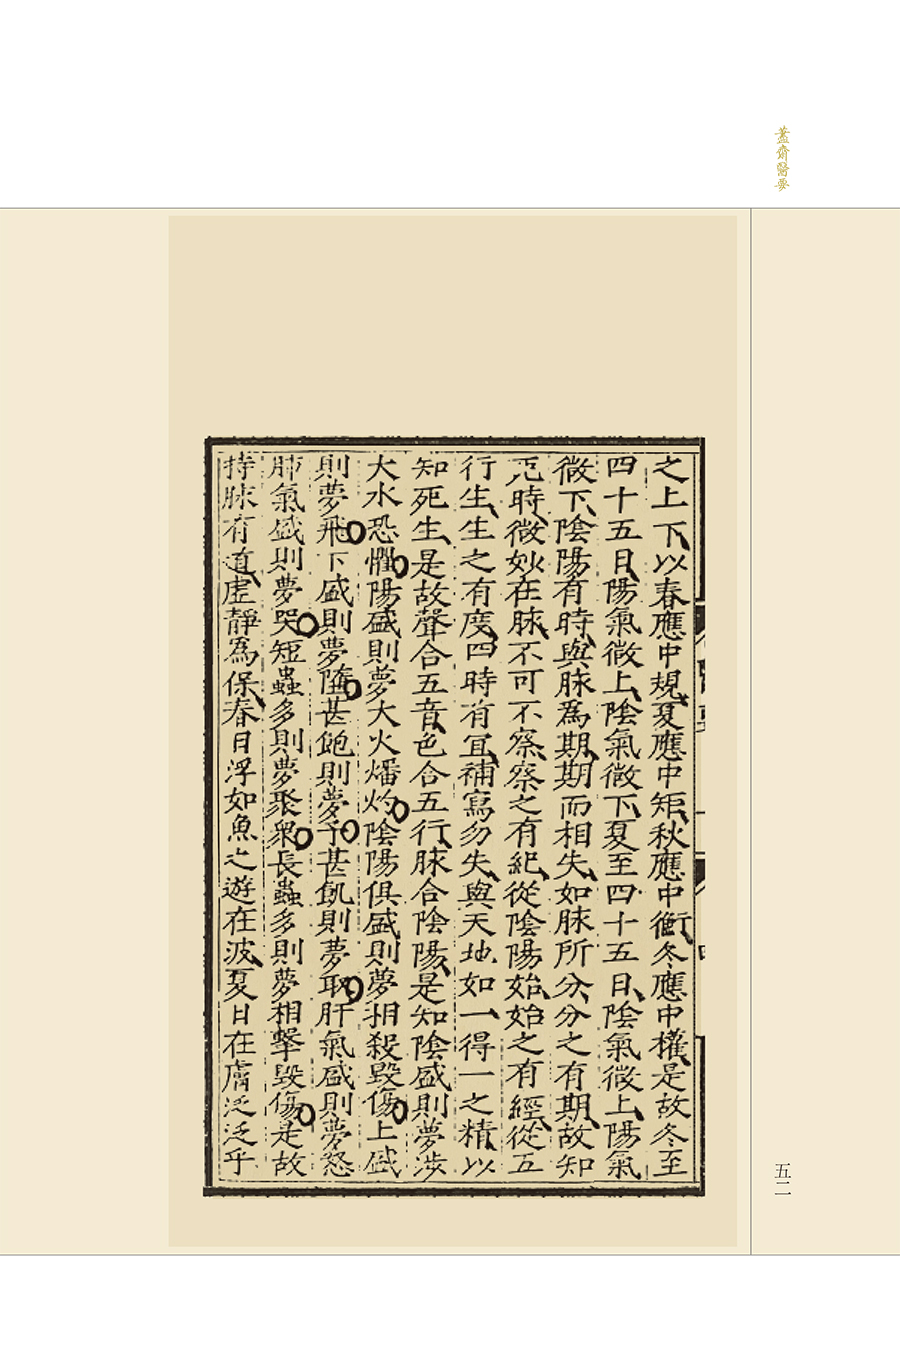 蠢齋醫要
之上下以春應中規夏應中矩秋應中衡冬應中權是故冬至
四十五日陽氣微上陰氣微下夏至四十五日陰氣微上陽氣
微下陰陽有時與脉爲期期而相失如脉所分分之有期故知
死時微妙在脉不可不察察之有紀從陰陽始始之有經從五
行生生之有度四時有宜補寫勿失與天地如一得一之精以
知死生是故聲合五音色合五行脉合陰陽是知陰盛則夢涉
大水恐懼陽盛則夢大火燔灼陰陽俱盛則夢相殺毀傷上盛
則夢飛下盛則夢墮甚飽則夢予甚飢則夢取肝氣盛則夢怒
肺氣盛則夢哭短蟲多則夢聚衆長蟲多則夢相擊毀傷是故
持脉有道虛靜爲保春日浮如魚之遊在波夏日在膚泛泛乎
五二